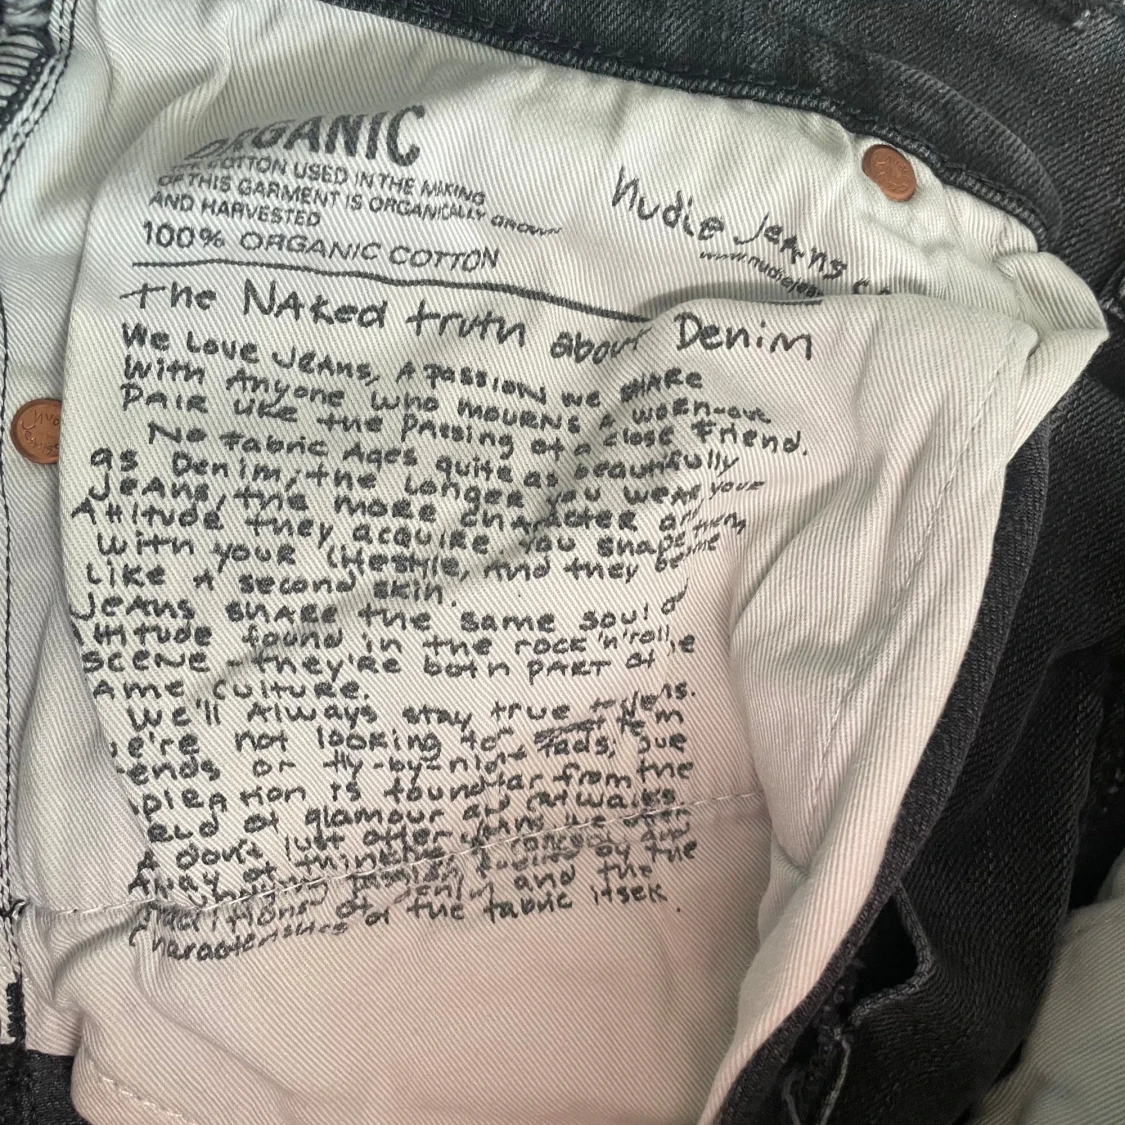 ORGANIC
THE COTTON USED IN THE MAKING
OF THIS GARMENT IS ORGANICALLY GROWN
AND HARVESTED
100% ORGANIC COTTON
Nudie Jeans co
www.nudiejea
the NAked truth about Denim
We Love JEANS, A passion we sHARE
With Anyone who mourns A worn-out
PAIR like the PASSING of a close Friend.
No Fabric Ages quite as beautifully
as Denim; the longer you wear your
JeANS, the more chARActer and
Attitude they acquire. You shape them
with your lifestyle, and they become
Like A second skin.
JeANS sHARE the same soul
ttitude found in the rock'n'roll
SCENE - they're both PART of
Ame culture.
We'll Always stay true to
e're not looking for
ends or fly-by-night fads;
piration is found far from the
of glamour and catwalks.
don't just offer
away of thinking,
passion by the
traditions of and the
characteristics of the fabric itself.